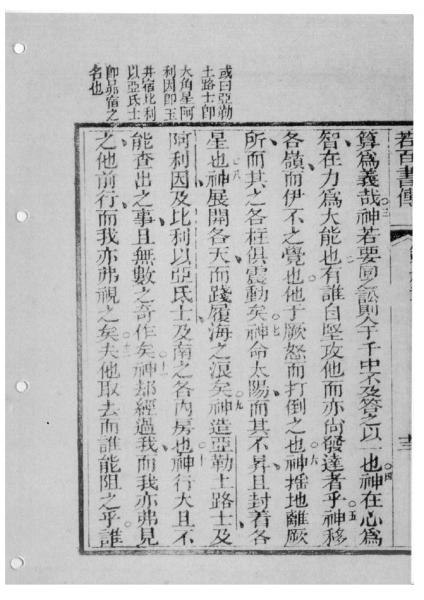 若百書傳
十三
算爲義哉神若要同之訟則人于千中不及答之以一也神在心爲
智在力爲大能也有誰自堅攻他而亦尚發達者乎神移
各嶺而伊不之覺也他于厥怒而打倒之也神搖地離厥
所而其之各柱俱震動矣神命太陽而其不昇且封着各
星也神展開各天而踐履海之浪矣神造亞勒土路士及
阿利因及比利以亞氏士及南之各內房也神行大且不
能查出之事且無數之奇作矣神却經過我而我亦弗見
之他前行而我亦弗視之矣夫他取去而誰能阻之乎誰
或曰亞勒
土路士卽
大角星阿
利因卽玉
井宿比利
以亞氏士
卽昴宿之
名也